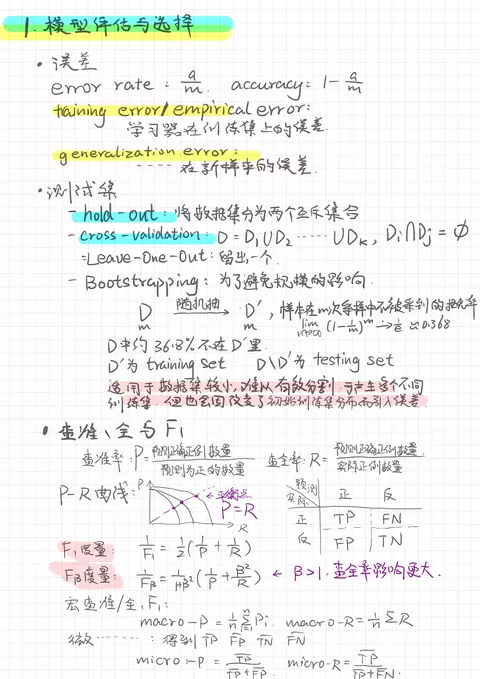 1. 模型评估与选择
• 误差
error rate: a/m. accuracy: 1 - a/m
training error/empirical error:
学习器在训练集上的误差.
generalization error:
······ 在新样本的误差.
• 测试集
- hold-out: 将数据集分为两个互斥集合
- cross-validation: D = D₁∪D₂ ······ ∪Dₖ, Dᵢ∩Dⱼ = ∅
=Leave-One-Out: 留出一个.
- Bootstrapping: 为了避免规模的影响.
D 随机抽→ D′, 样本在m次采样中不被采到的概率
m m lim m→∞ (1-1/m)^m → 1/e ≈ 0.368
D中约36.8%不在D′里.
D′为 training set D\D′为 testing set
适用于数据集较小, 难以有效分割, 可产生多个不同
训练集. 但也会因改变了初始训练集分布而引入误差.
• 查准、全与F₁
查准率: P = 预测正确正例数量/预测为正的数量 查全率: R = 预测正确正例数量/实际正例数量
P-R曲线: P R 平衡点 P=R
预测 实际 正 反
正 TP FN
反 FP TN
F₁度量: 1/F₁ = 1/2(1/P + 1/R)
Fβ度量: 1/Fβ = 1/1+β²(1/P + β²/R) ← β>1. 查全率影响更大.
宏查准/全, F₁:
macro-P = 1/n Σ Pᵢ. macro-R = 1/n Σ R
微 ······ : 得到 TP̅ FP̅ TN̅ FN̅
micro-P = TP̅/TP̅+FP̅. micro-R = TP̅/TP̅+FN̅.